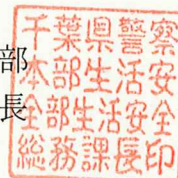 部
長
千葉県警察
本部生活安
全部生活安全
総務課長印